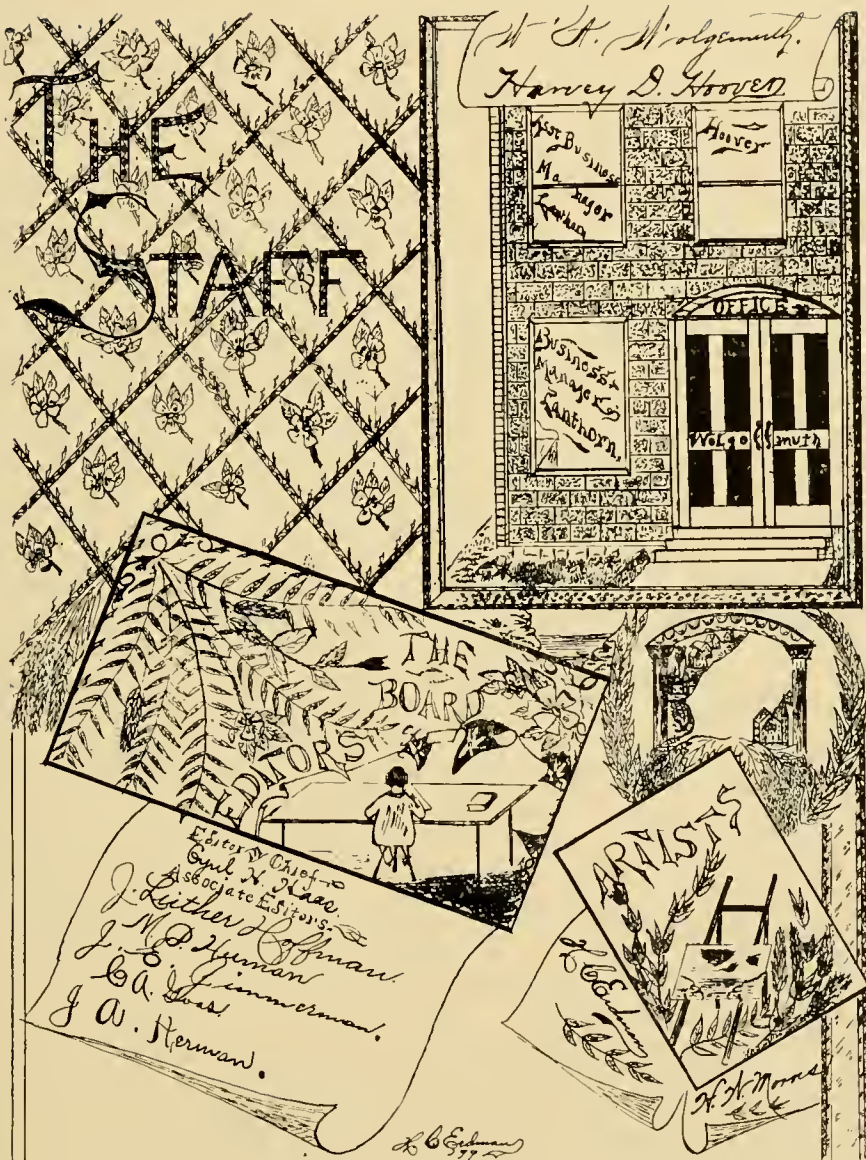 THE
STAFF
W. A. Wolgemuth.
Harvey D. Hoover
Asst Business
Manager
Lanthorn
Hoover
OFFICE
Business
Manager
Lanthorn.
Wolge muth
THE
BOARD
EDITORS
Editor Chief
Cyril H. Haas.
Associate Editors.
J. Luther Hoffman.
M. P. Herman
J. E. Zimmerman.
J. A. Herman.
ARTISTS
H C Erdman
H. W. Morris
H C Erdman
'99